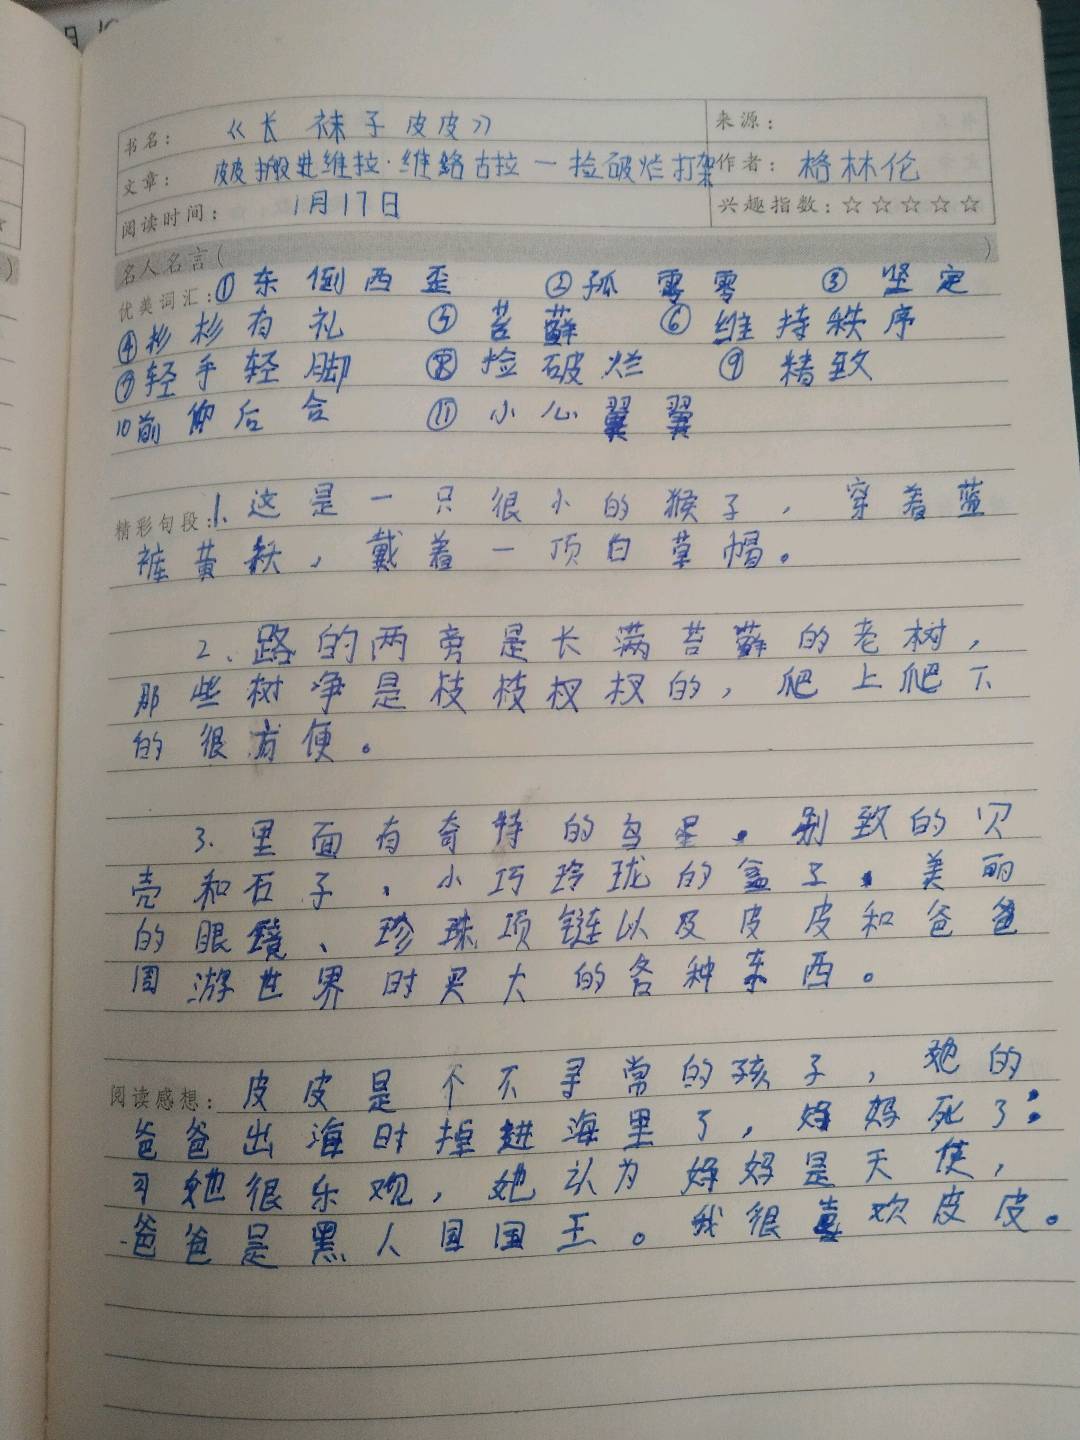 书名: 《长袜子皮皮》 来源:
文章: 皮皮搬进维拉·维路古拉一捡破烂打架 作者: 格林伦
阅读时间: 1月17日 兴趣指数: ☆☆☆☆☆
名人名言( )
优美词汇: ①东倒西歪 ②孤零零 ③坚定
④彬彬有礼 ⑤苔藓 ⑥维持秩序
⑦轻手轻脚 ⑧捡破烂 ⑨精致
10前仰后合 ⑪小心翼翼
精彩句段: 1.这是一只很小的猴子,穿着蓝
裤黄袄,戴着一顶白草帽。
2、路的两旁是长满苔藓的老树,
那些树净是枝枝杈杈的,爬上爬下
的很方便。
3.里面有奇特的鸟蛋、别致的贝
壳和石子、小巧玲珑的盒子、美丽
的眼镜、珍珠项链以及皮皮和爸爸
周游世界时买大的各种东西。
阅读感想: 皮皮是个不寻常的孩子,她的
爸爸出海时掉进海里了,妈妈死了;
可她很乐观,她认为妈妈是天使,
爸爸是黑人国国王。我很喜欢皮皮。